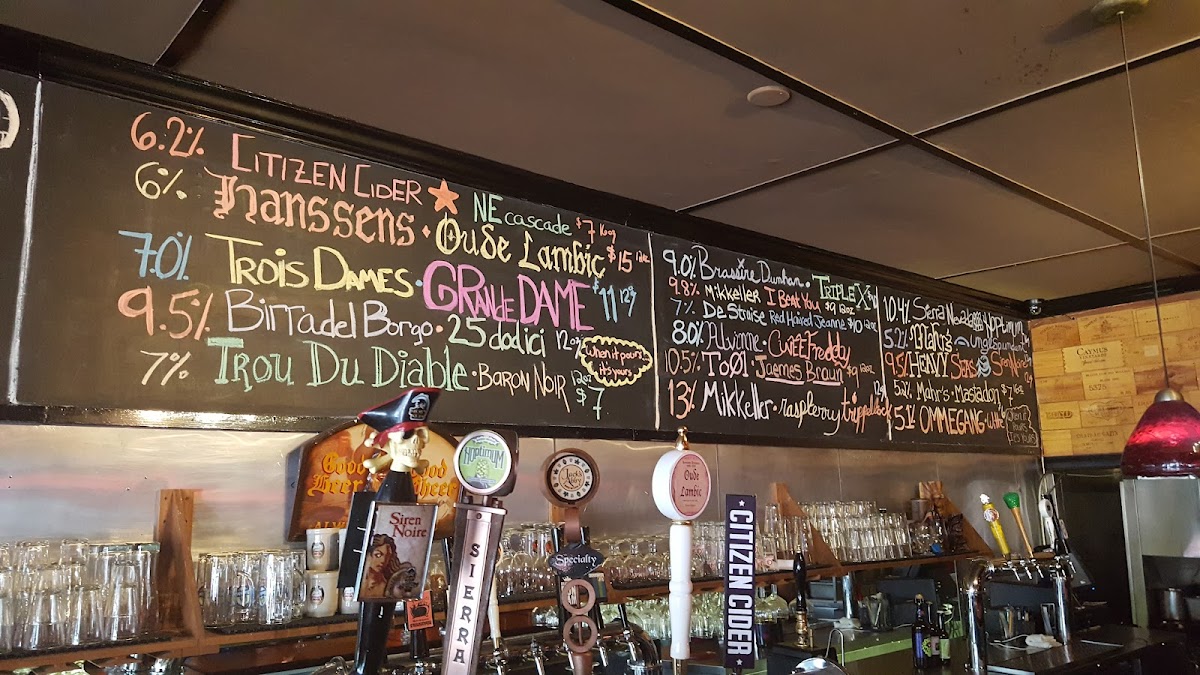 6.2% CITIZEN CIDER NE cascade $7 16oz
6% Hanssens · Oude Lambic $15 12oz
7.0% TROIS DAMES · GRANDE DAME $11 12oz
9.5% Birra del Borgo · 25 dodici 12oz
7% TROU DU DIABLE · BARON NOIR 12oz $7
When it pours,
it's yours
9.0% Brassire Dunham · TRIPLE X
9.8% Mikkeller I Beat You $9 12oz
7% De Struise Red Haired Jeanne $10 12oz
8.0% Alvinne · Cuvée Freddy
10.5% TO Øl · Jaemes Braun $9 12oz
13% Mikkeller · raspberry trippelbock
10.4% Sierra Nevada Hoptimum
5.2% Mahr's Ungespundet
9.5% HEAVY SEAS Siren Noire
5.2% Mahr's · Mastadon $7 16oz
5.1% OMMEGANG Witte
When it
Pours
Its Yours
CAYMUS
Good
Beer
Good
Cheer
HOPTIMUM
SIERRA
Siren
Noire
Specialty
Oude
Lambic
CITIZEN CIDER